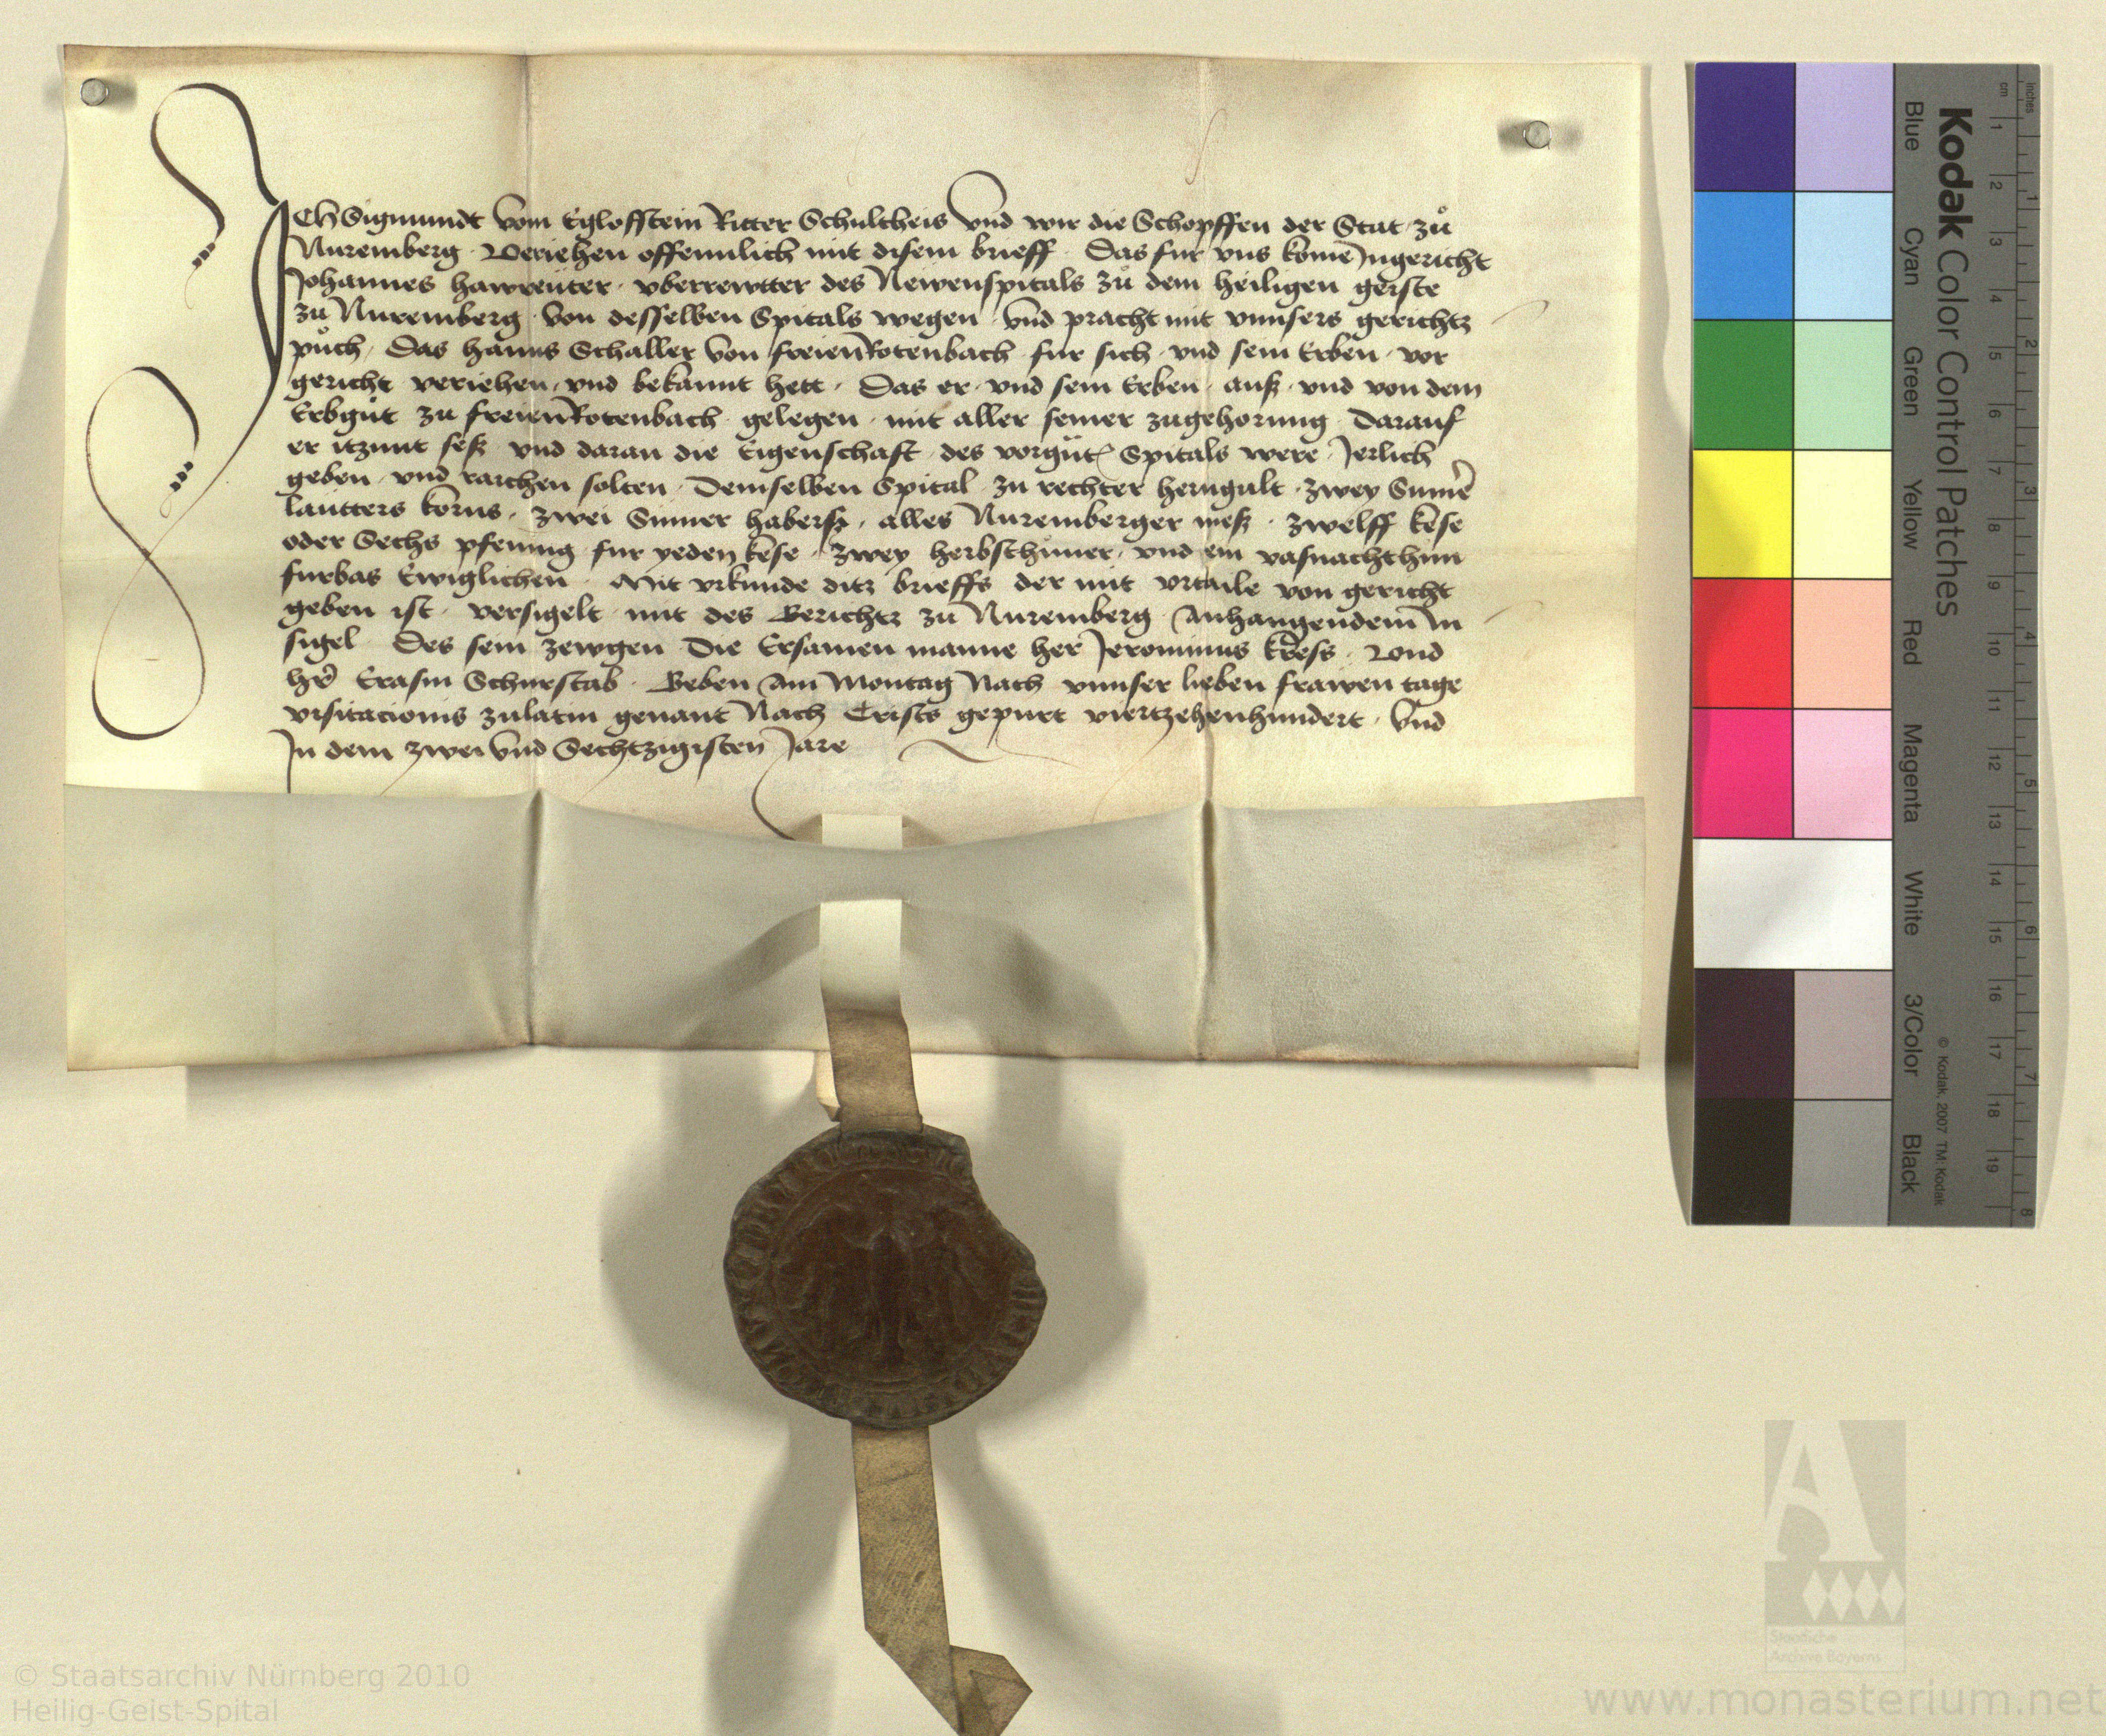 ICh Sigmundt vom Egloffstein Ritter Schultheis Vnd wir die Schopffen der Stat zů
Nuremberg · Veriehen offennlich mit disem brieff · Das fur vns kome Ingericht
Johannes hawreuter · vberrewtter des Newenspitals zů dem heiligen geiste
zu Nuremberg · Von desselben Spitals wegen · Vnd pracht mit vnnsers gerichtz
půch · Das hanns Schaller Von freienRotenbach · fur sich · vnd sein Erben · vor
gericht veriehen · vnd bekannt hett · Das er · vnd sein Erben · auß · vnd von dem
Erbgůt zu freienRotenbach · gelegen · mit aller seiner zugehorung · Darauf
er itzunt seß · vnd daran die Eigenschaft · des vorgut Spitals were · Jerlich
geben · vnd raichen solten · Demselben Spital · zu rechter herngult · zwey Sumer
lautters korns · zwei Sumer haberß · alles Nuremberger meß · zwelff kese
oder Sechs pfening · fur yeden kese · zwey herbsthuner · vnd ein vasnachthun
furbas Ewiglichen · Mit vrkunde ditz brieffs der mit vrtaile von gericht
geben ist · versigelt · mit des Gerichtz zu Nuremberg · Anhangendem In
sigel · Des sein zewgen Die Ersamen manne her Jeronimus kress · Vnd
her Erasm Schurstab · Geben Am Montag Nach vnnser lieben frawen tage
visitacionis zulatin genant Nach Crists gepurt viertzehenhundert · Vnd
In dem zwei Vnd Sechtzigisten Jare
Kodak Color Control Patches
Blue Cyan Green Yellow Red Magenta White 3/Color Black
© Kodak, 2007 TM: Kodak
inches 1 2 3 4 5 6 7 8
cm 1 2 3 4 5 6 7 8 9 10 11 12 13 14 15 16 17 18 19
Staatliche
Archive Bayerns
© Staatsarchiv Nürnberg 2010
Heilig-Geist-Spital
www.monasterium.net